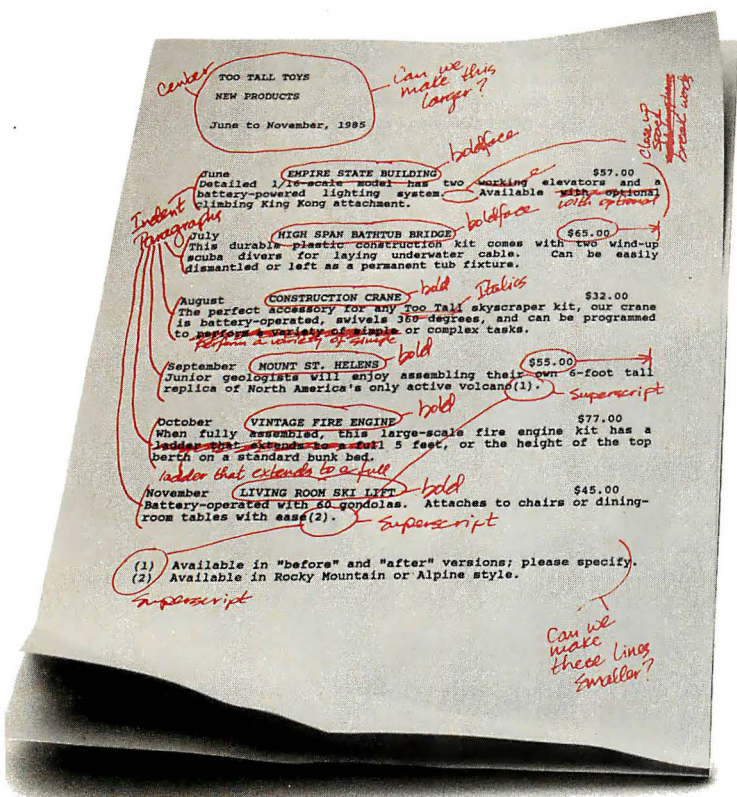 center
TOO TALL TOYS
NEW PRODUCTS
June to November, 1985
Can we
make this
larger?
Close up
space
break words
boldface
June EMPIRE STATE BUILDING $57.00
Detailed 1/16-scale model has two working elevators and a
battery-powered lighting system. Available with optional
with optional
climbing King Kong attachment.
Indent
Paragraphs
boldface
July HIGH SPAN BATHTUB BRIDGE $65.00
This durable plastic construction kit comes with two wind-up
scuba divers for laying underwater cable. Can be easily
dismantled or left as a permanent tub fixture.
bold
Italics
August CONSTRUCTION CRANE $32.00
The perfect accessory for any Too Tall skyscraper kit, our crane
is battery-operated, swivels 360 degrees, and can be programmed
to perform a variety of simple or complex tasks.
Perform a variety of simple
bold
September MOUNT ST. HELENS $55.00
Junior geologists will enjoy assembling their own 6-foot tall
replica of North America's only active volcano(1).
Superscript
bold
October VINTAGE FIRE ENGINE $77.00
When fully assembled, this large-scale fire engine kit has a
ladder that extends to a full 5 feet, or the height of the top
berth on a standard bunk bed.
ladder that extends to a full
bold
November LIVING ROOM SKI LIFT $45.00
Battery-operated with 60 gondolas. Attaches to chairs or dining-
room tables with ease(2).
Superscript
(1) Available in "before" and "after" versions; please specify.
(2) Available in Rocky Mountain or Alpine style.
Superscript
Can we
make
these lines
smaller?